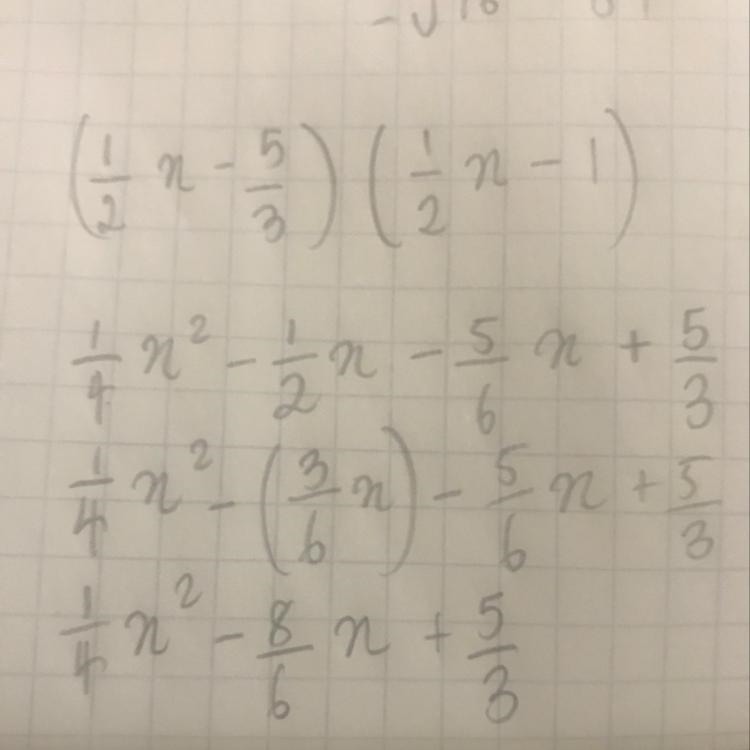 (1/2 x - 5/3) (1/2 x - 1)
1/4 x² - 1/2 x - 5/6 x + 5/3
1/4 x² - (3/6 x) - 5/6 x + 5/3
1/4 x² - 8/6 x + 5/3